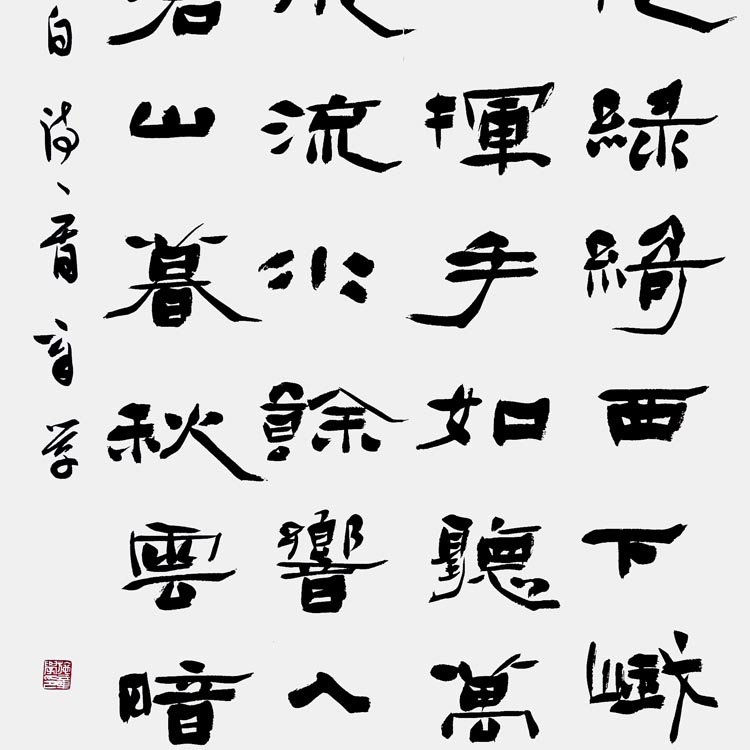 綠綺西下峨
揮手如聽萬
流水餘響入
碧山暮秋雲暗
白詩